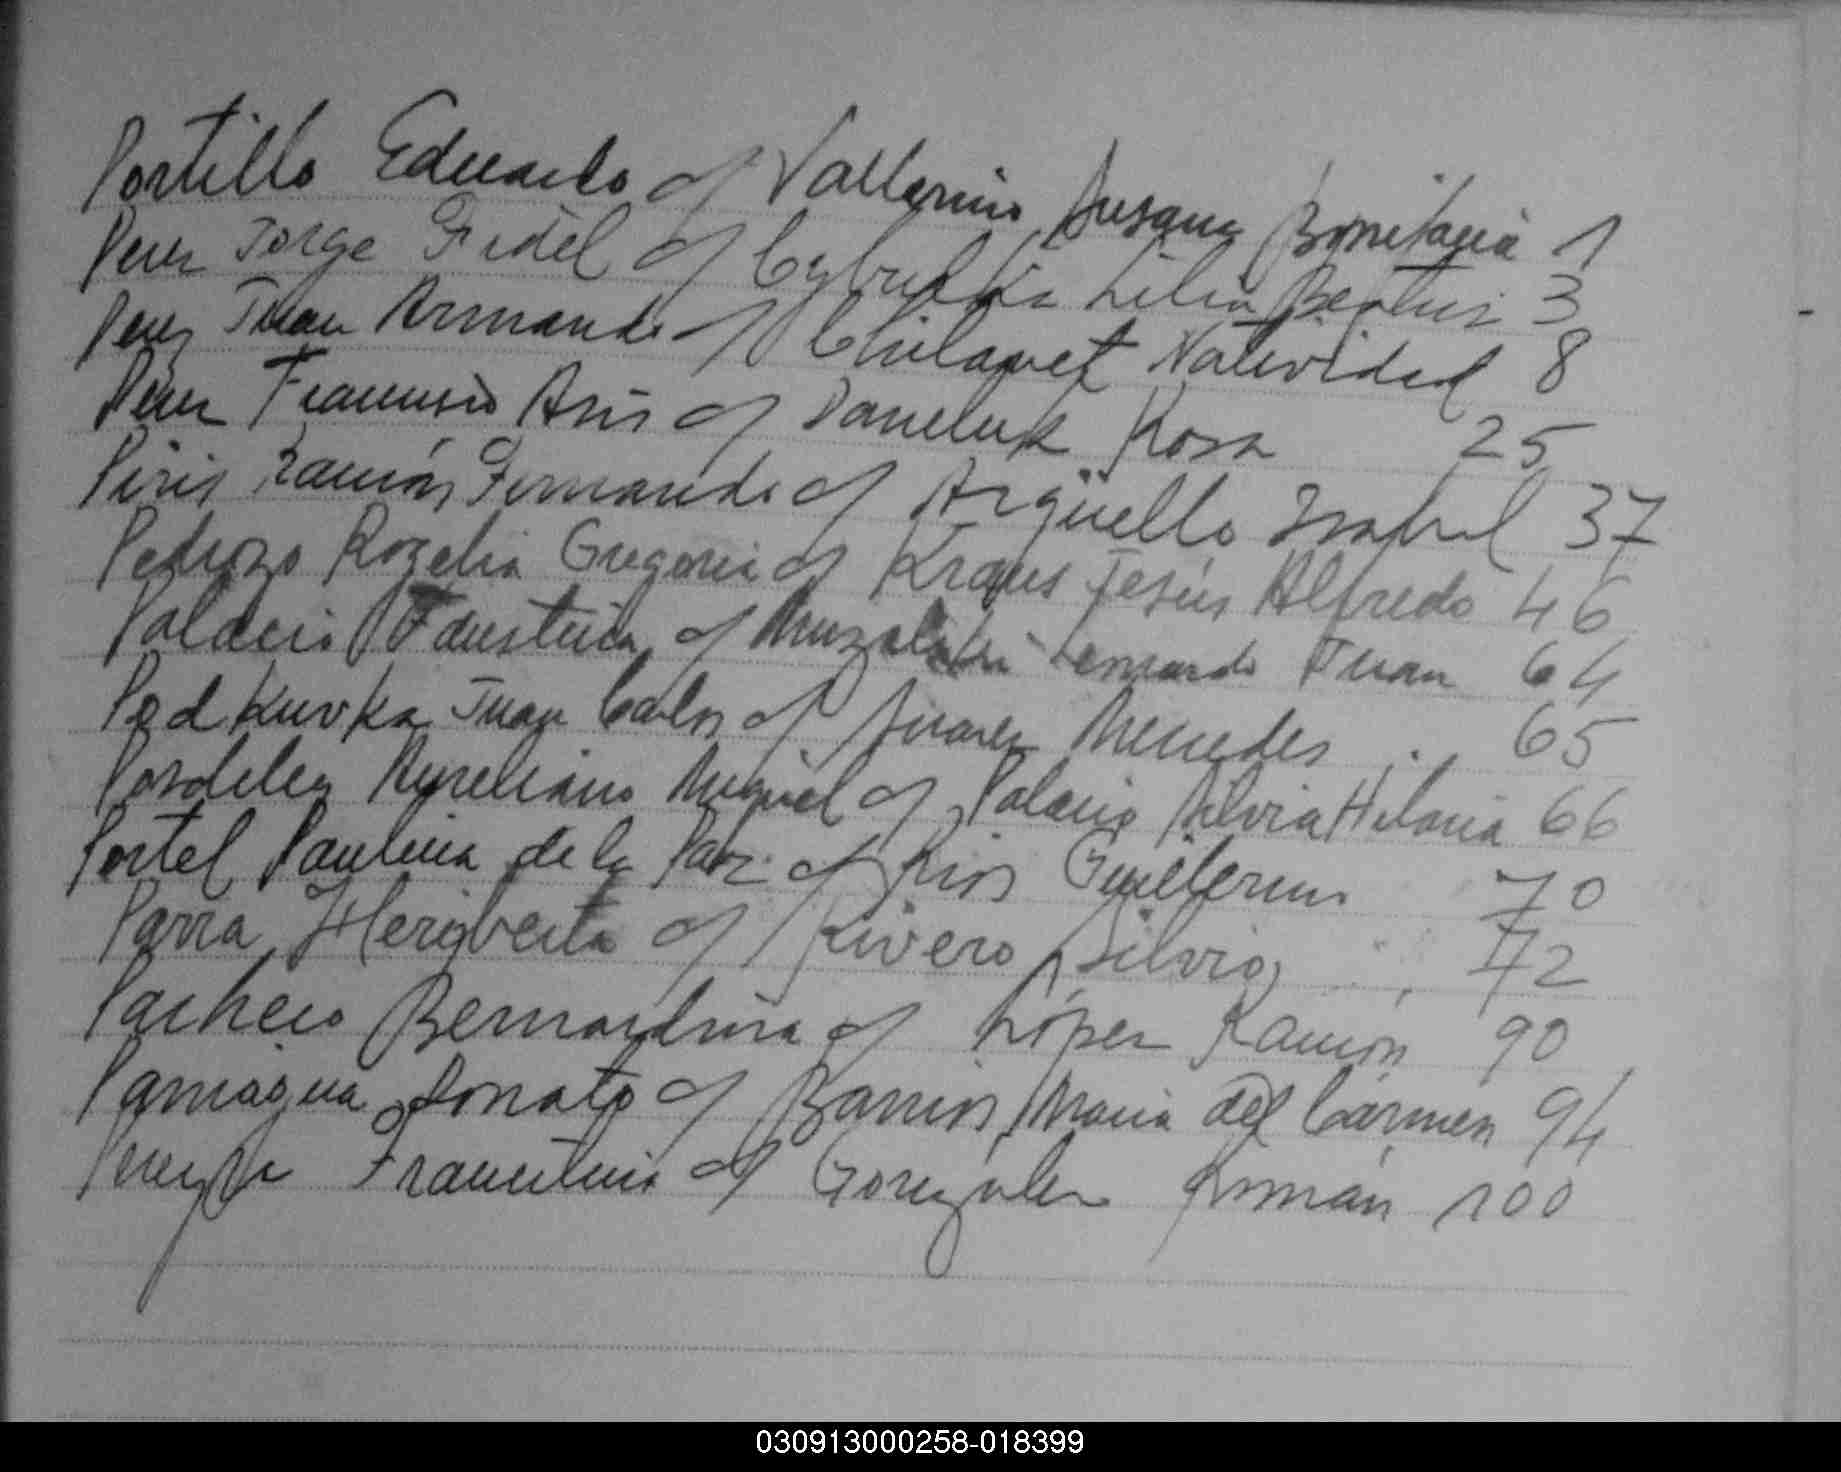 Portillo Eduardo c/ Vallerino Susana Bonifacia 1
Perez Jorge Fidel c/ Lilia Beatriz 3
Perez Juan Armando c/ Chilavet Natividad 8
Perez Francisco Asis c/ Daneluk Rosa 25
Piris Ramón Fernando c/ Argüello Isabel 37
Pedrozo Rogelia Gregoria c/ Kraus Jesús Alfredo 46
Palacio Faustina c/ Leonardo Juan 64
Podkuvka Juan Carlos c/ Juarez Mercedes 65
Posdeley Aureliano Miguel c/ Palacio Silvia Hilaria 66
Portel Paulina de la Paz c/ Rios Guillermo 70
Parra Herigberta c/ Rivero Silvio 72
Pacheco Bernardina c/ López Ramón 90
Paniagua Donato c/ Barrios Maria del Cármen 94
Pereyra c/ González Román 100
030913000258-018399